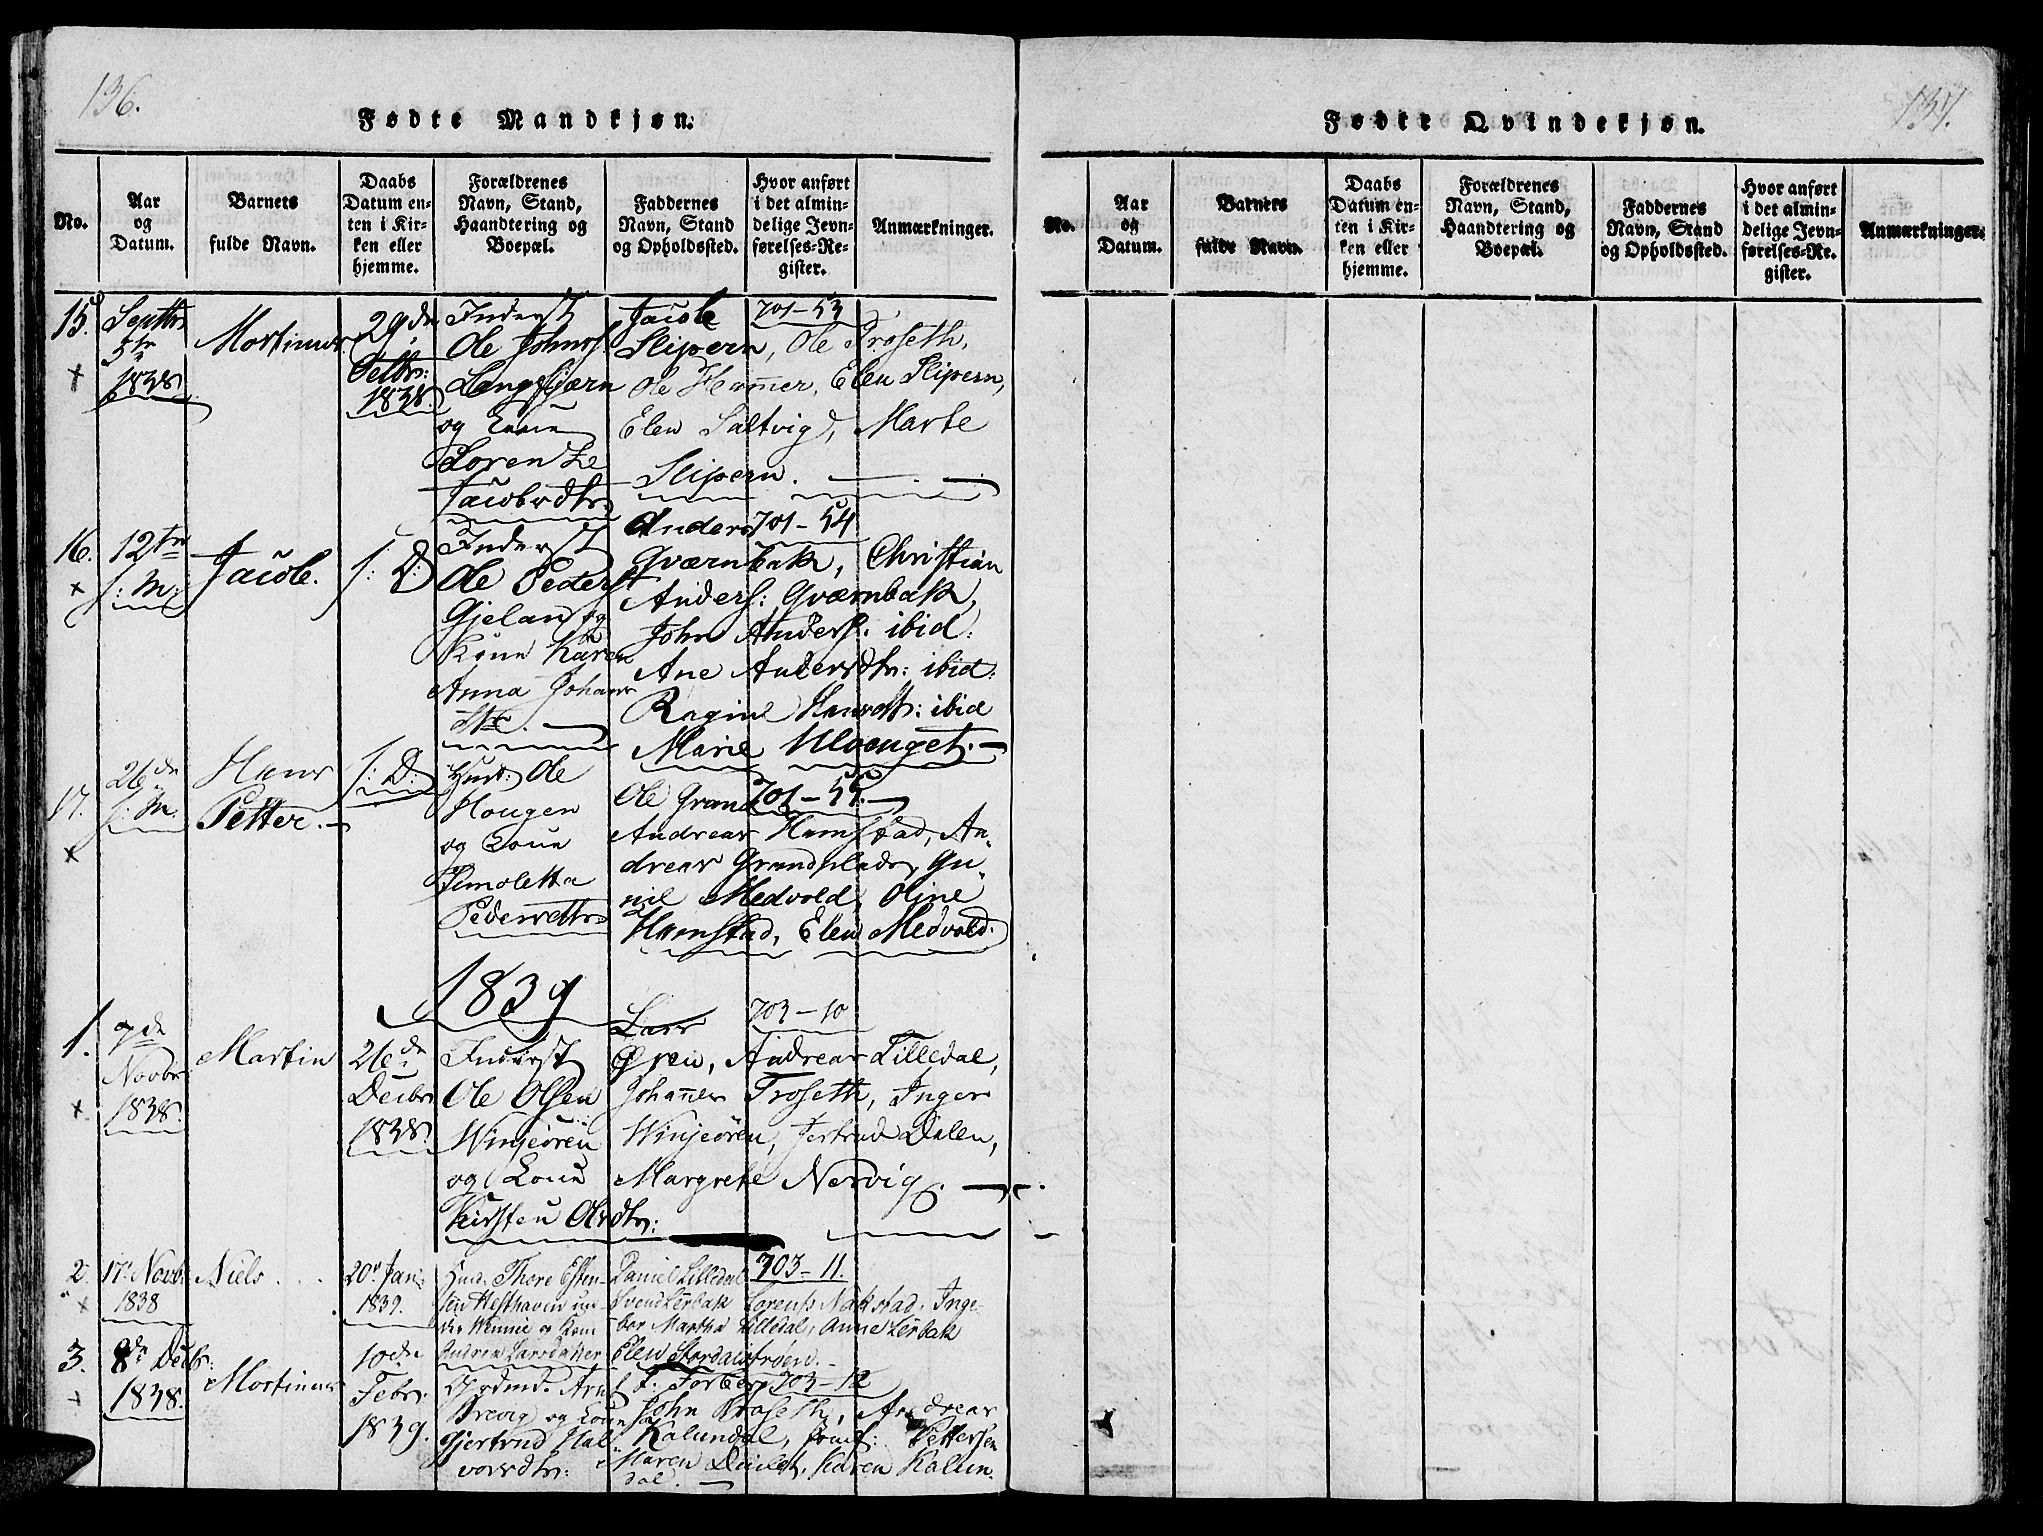 136.
Fødte Mandkjøn.
No.
Aar
og
Datum.
Barnets
fulde Navn.
Daabs
Datum en-
ten i Kir-
ken eller
hjemme.
Forældrenes
Navn, Stand,
Haandtering og
Boepæl.
Faddernes
Navn, Stand
og Opholdssted.
Hvor anført
i det almin-
delige Jevn-
førelses-Re-
gister.
Anmærkninger.
15.
Septbr
5te
1838.
Mortinus
29de
1838.
Inderst
Ole Johns:
Langhjærn
og
Lorentze
Jacobsdtr
Jacob 701-53
Slipern, Ole Troseth,
Ole Hammer, Elen Slipern,
Elen Saltvig, Marte
Slipern.
16.
12te
s: M:
Jacob.
s: D:
Inderst
Ole Peders:
Gjelan og
Kone Karen
Anna Johans
dtr.
Anders 701-54
Qværnbak, Christian
Anders: Qværnbak,
John Anders: ibid:
Ane Andersdtr: ibid:
Ragine Hansdtr: ibid
Marie Ulvenget.
17.
26de
s: M.
Hans
Petter.
s: D:
Husm: Ole
Hougen
og Kone
Pedersdtr
Ole Grand 701-55.
Andreas Hamstad, An-
dreas Grandplads, Gu-
nil Medvold, Oline
Hamstad, Elen Medvold.
1839
1.
7de
Novbr
1838.
Martin
26de
Decbr
1838.
Inderst
Ole Olsen
Winjeören
og Kone
Kirsten Olsdtr:
Lars 703-10
Øren, Andreas Lilledal,
Johannes Troseth, Inger
Winjeören, Gertrud Dalen,
Margrete Nervig.
2.
17. Novb.
1838
Niels
20. Jan.
1839.
Husm. Thore Esten-
sen Hesthaven un-
der Wennie og Kone
Andrea Larsdatter
Daniel Lilledal 703-11.
Svend Lerbak Lorents Nakstad. Inge-
bor Martha Lilledal, Anne Lerbak
Elen Stordalströen.
3.
8de Decbr:
1838.
Mortinus
10de
Febr.
1839.
Arnt
Brevig og Kone
Gjertrud Hal-
vorsdtr:
703-12
John Troseth, Andreas
Kalundal, Pettersen
Maren Karen Kalun-
dal.
137.
Fødte Qvindekjøn.
No.
Aar
og
Datum.
Barnets
fulde Navn.
Daabs
Datum en-
ten i Kir-
ken eller
hjemme.
Forældrenes
Navn, Stand,
Haandtering og
Boepæl.
Faddernes
Navn, Stand
og Opholdssted.
Hvor anført
i det almin-
delige Jevn-
førelses-Re-
gister.
Anmærkninger.